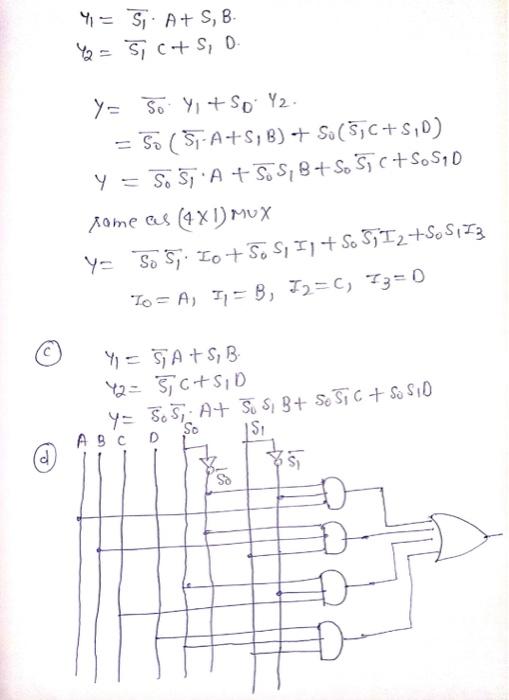 Y1 = S̅1· A + S1 B.
Y2 = S̅1 C + S1 D.
Y = S̅0· Y1 + S0· Y2.
= S̅0 (S̅1·A + S1 B) + S0 (S̅1 C + S1 D)
Y = S̅0 S̅1·A + S̅0 S1 B + S0 S̅1 C + S0 S1 D
same as (4×1) MUX
Y = S̅0 S̅1· I0 + S̅0 S1 I1 + S0 S̅1 I2 + S0 S1 I3
I0 = A, I1 = B, I2 = C, I3 = D
(c) Y1 = S̅1 A + S1 B.
Y2 = S̅1 C + S1 D
Y = S̅0 S̅1· A + S̅0 S1 B + S0 S̅1 C + S0 S1 D
(d) A B C D S0 S1
S̅0 S̅1